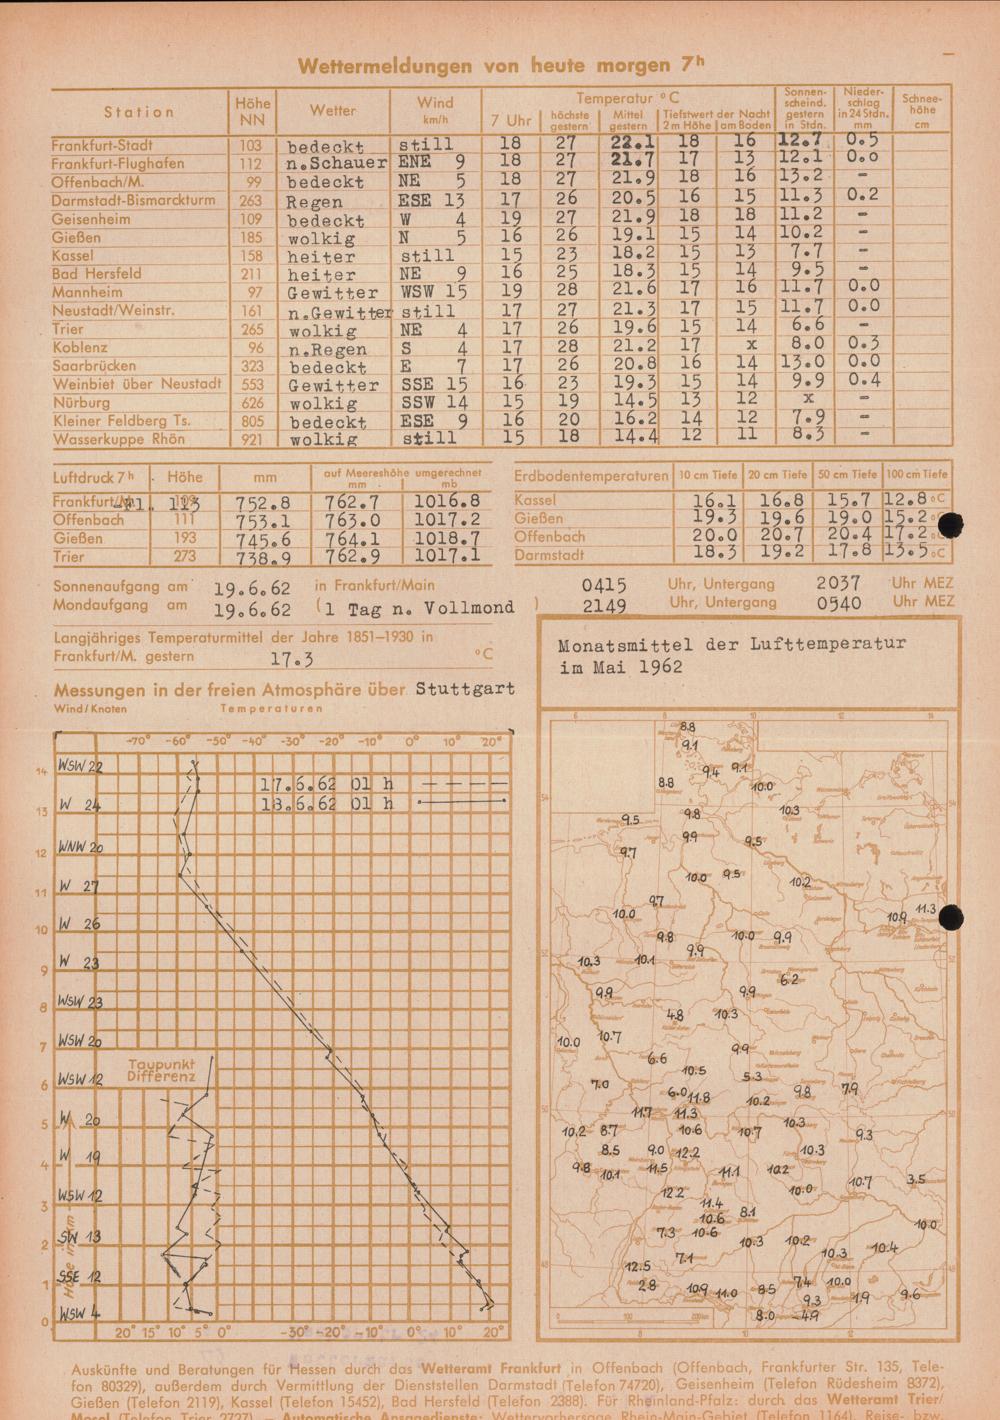 Wettermeldungen von heute morgen 7h
Station Höhe NN Wetter Wind km/h Temperatur °C Sonnenscheind. gestern in Stdn. Niederschlag in 24 Stdn. mm Schneehöhe cm
7 Uhr höchste gestern Mittel gestern Tiefstwert der Nacht 2 m Höhe am Boden
Frankfurt-Stadt 103 bedeckt still 18 27 22.1 18 16 12.7 0.5
Frankfurt-Flughafen 112 n.Schauer ENE 9 18 27 21.7 17 13 12.1 0.0
Offenbach/M. 99 bedeckt NE 5 18 27 21.9 18 16 13.2 -
Darmstadt-Bismarckturm 263 Regen ESE 13 17 26 20.5 16 15 11.3 0.2
Geisenheim 109 bedeckt W 4 19 27 21.9 18 18 11.2 -
Gießen 185 wolkig N 5 16 26 19.1 15 14 10.2 -
Kassel 158 heiter still 15 23 18.2 15 13 7.7 -
Bad Hersfeld 211 heiter NE 9 16 25 18.3 15 14 9.5 -
Mannheim 97 Gewitter WSW 15 19 28 21.6 17 16 11.7 0.0
Neustadt/Weinstr. 161 n.Gewitter still 17 27 21.3 17 15 11.7 0.0
Trier 265 wolkig NE 4 17 26 19.6 15 14 6.6 -
Koblenz 96 n.Regen S 4 17 28 21.2 17 x 8.0 0.3
Saarbrücken 323 bedeckt E 7 17 26 20.8 16 14 13.0 0.0
Weinbiet über Neustadt 553 Gewitter SSE 15 16 23 19.3 15 14 9.9 0.4
Nürburg 626 wolkig SSW 14 15 19 14.5 13 12 x -
Kleiner Feldberg Ts. 805 bedeckt ESE 9 16 20 16.2 14 12 7.9 -
Wasserkuppe Rhön 921 wolkig still 15 18 14.4 12 11 8.3 -
Luftdruck 7h Höhe mm auf Meereshöhe umgerechnet mm mb
Frankfurt/M.-Fl. 113 752.8 762.7 1016.8
Offenbach 111 753.1 763.0 1017.2
Gießen 193 745.6 764.1 1018.7
Trier 273 738.9 762.9 1017.1
Erdbodentemperaturen 10 cm Tiefe 20 cm Tiefe 50 cm Tiefe 100 cm Tiefe
Kassel 16.1 16.8 15.7 12.8 °C
Gießen 19.3 19.6 19.0 15.2 °C
Offenbach 20.0 20.7 20.4 17.2 °C
Darmstadt 18.3 19.2 17.8 13.5 °C
Sonnenaufgang am 19.6.62 in Frankfurt/Main 0415 Uhr, Untergang 2037 Uhr MEZ
Mondaufgang am 19.6.62 (1 Tag n. Vollmond ) 2149 Uhr, Untergang 0540 Uhr MEZ
Langjähriges Temperaturmittel der Jahre 1851–1930 in
Frankfurt/M. gestern 17.3 °C
Messungen in der freien Atmosphäre über Stuttgart
Wind/Knoten Temperaturen
-70° -60° -50° -40° -30° -20° -10° 0° 10° 20°
17.6.62 01 h
18.6.62 01 h
14 WSW 22
13 W 24
12 WNW 20
11 W 27
10 W 26
9 W 23
8 WSW 23
7 WSW 20
6 WSW 12
5 W 20
4 W 19
3 WSW 12
2 SW 13
1 SSE 12
0 WSW 4
Taupunkt
Differenz
20° 15° 10° 5° 0° -30° -20° -10° 0° 10° 20°
Monatsmittel der Lufttemperatur
im Mai 1962
8.8
9.1
9.4 9.1
8.8 10.0
10.3
9.5 9.8
9.9 9.5
9.7
10.0 9.5 10.2
9.7
10.0 10.9 11.3
9.8 10.0 9.9
9.9
10.3 10.1
6.2
9.9 9.9
4.8 10.3
10.0 10.7
9.9
6.6
10.5 5.3
7.0 6.0 11.8 9.8 7.9
10.2
11.7 11.3 10.3
10.2 8.7 10.6 10.7 9.3
8.5 9.0 12.2 10.3
9.8 10.1 11.5 11.1 10.2
10.7 3.5
12.2 10.0
11.4
10.6 8.1
10.0
7.3 10.6 10.3 10.2
10.3 10.4
7.1
12.5
2.8 10.9 11.0 8.5 7.4 10.0
9.3 1.9 9.6
8.0 -4.9
Auskünfte und Beratungen für Hessen durch das Wetteramt Frankfurt in Offenbach (Offenbach, Frankfurter Str. 135, Tele-
fon 80329), außerdem durch Vermittlung der Dienststellen Darmstadt (Telefon 74720), Geisenheim (Telefon Rüdesheim 8372),
Gießen (Telefon 2119), Kassel (Telefon 15452), Bad Hersfeld (Telefon 2388). Für Rheinland-Pfalz: durch das Wetteramt Trier/
Mosel (Telefon Trier 2727). — Automatische Ansagedienste: Wettervorhersage Rhein-Main-Gebiet (Telefon 1164), Reise-